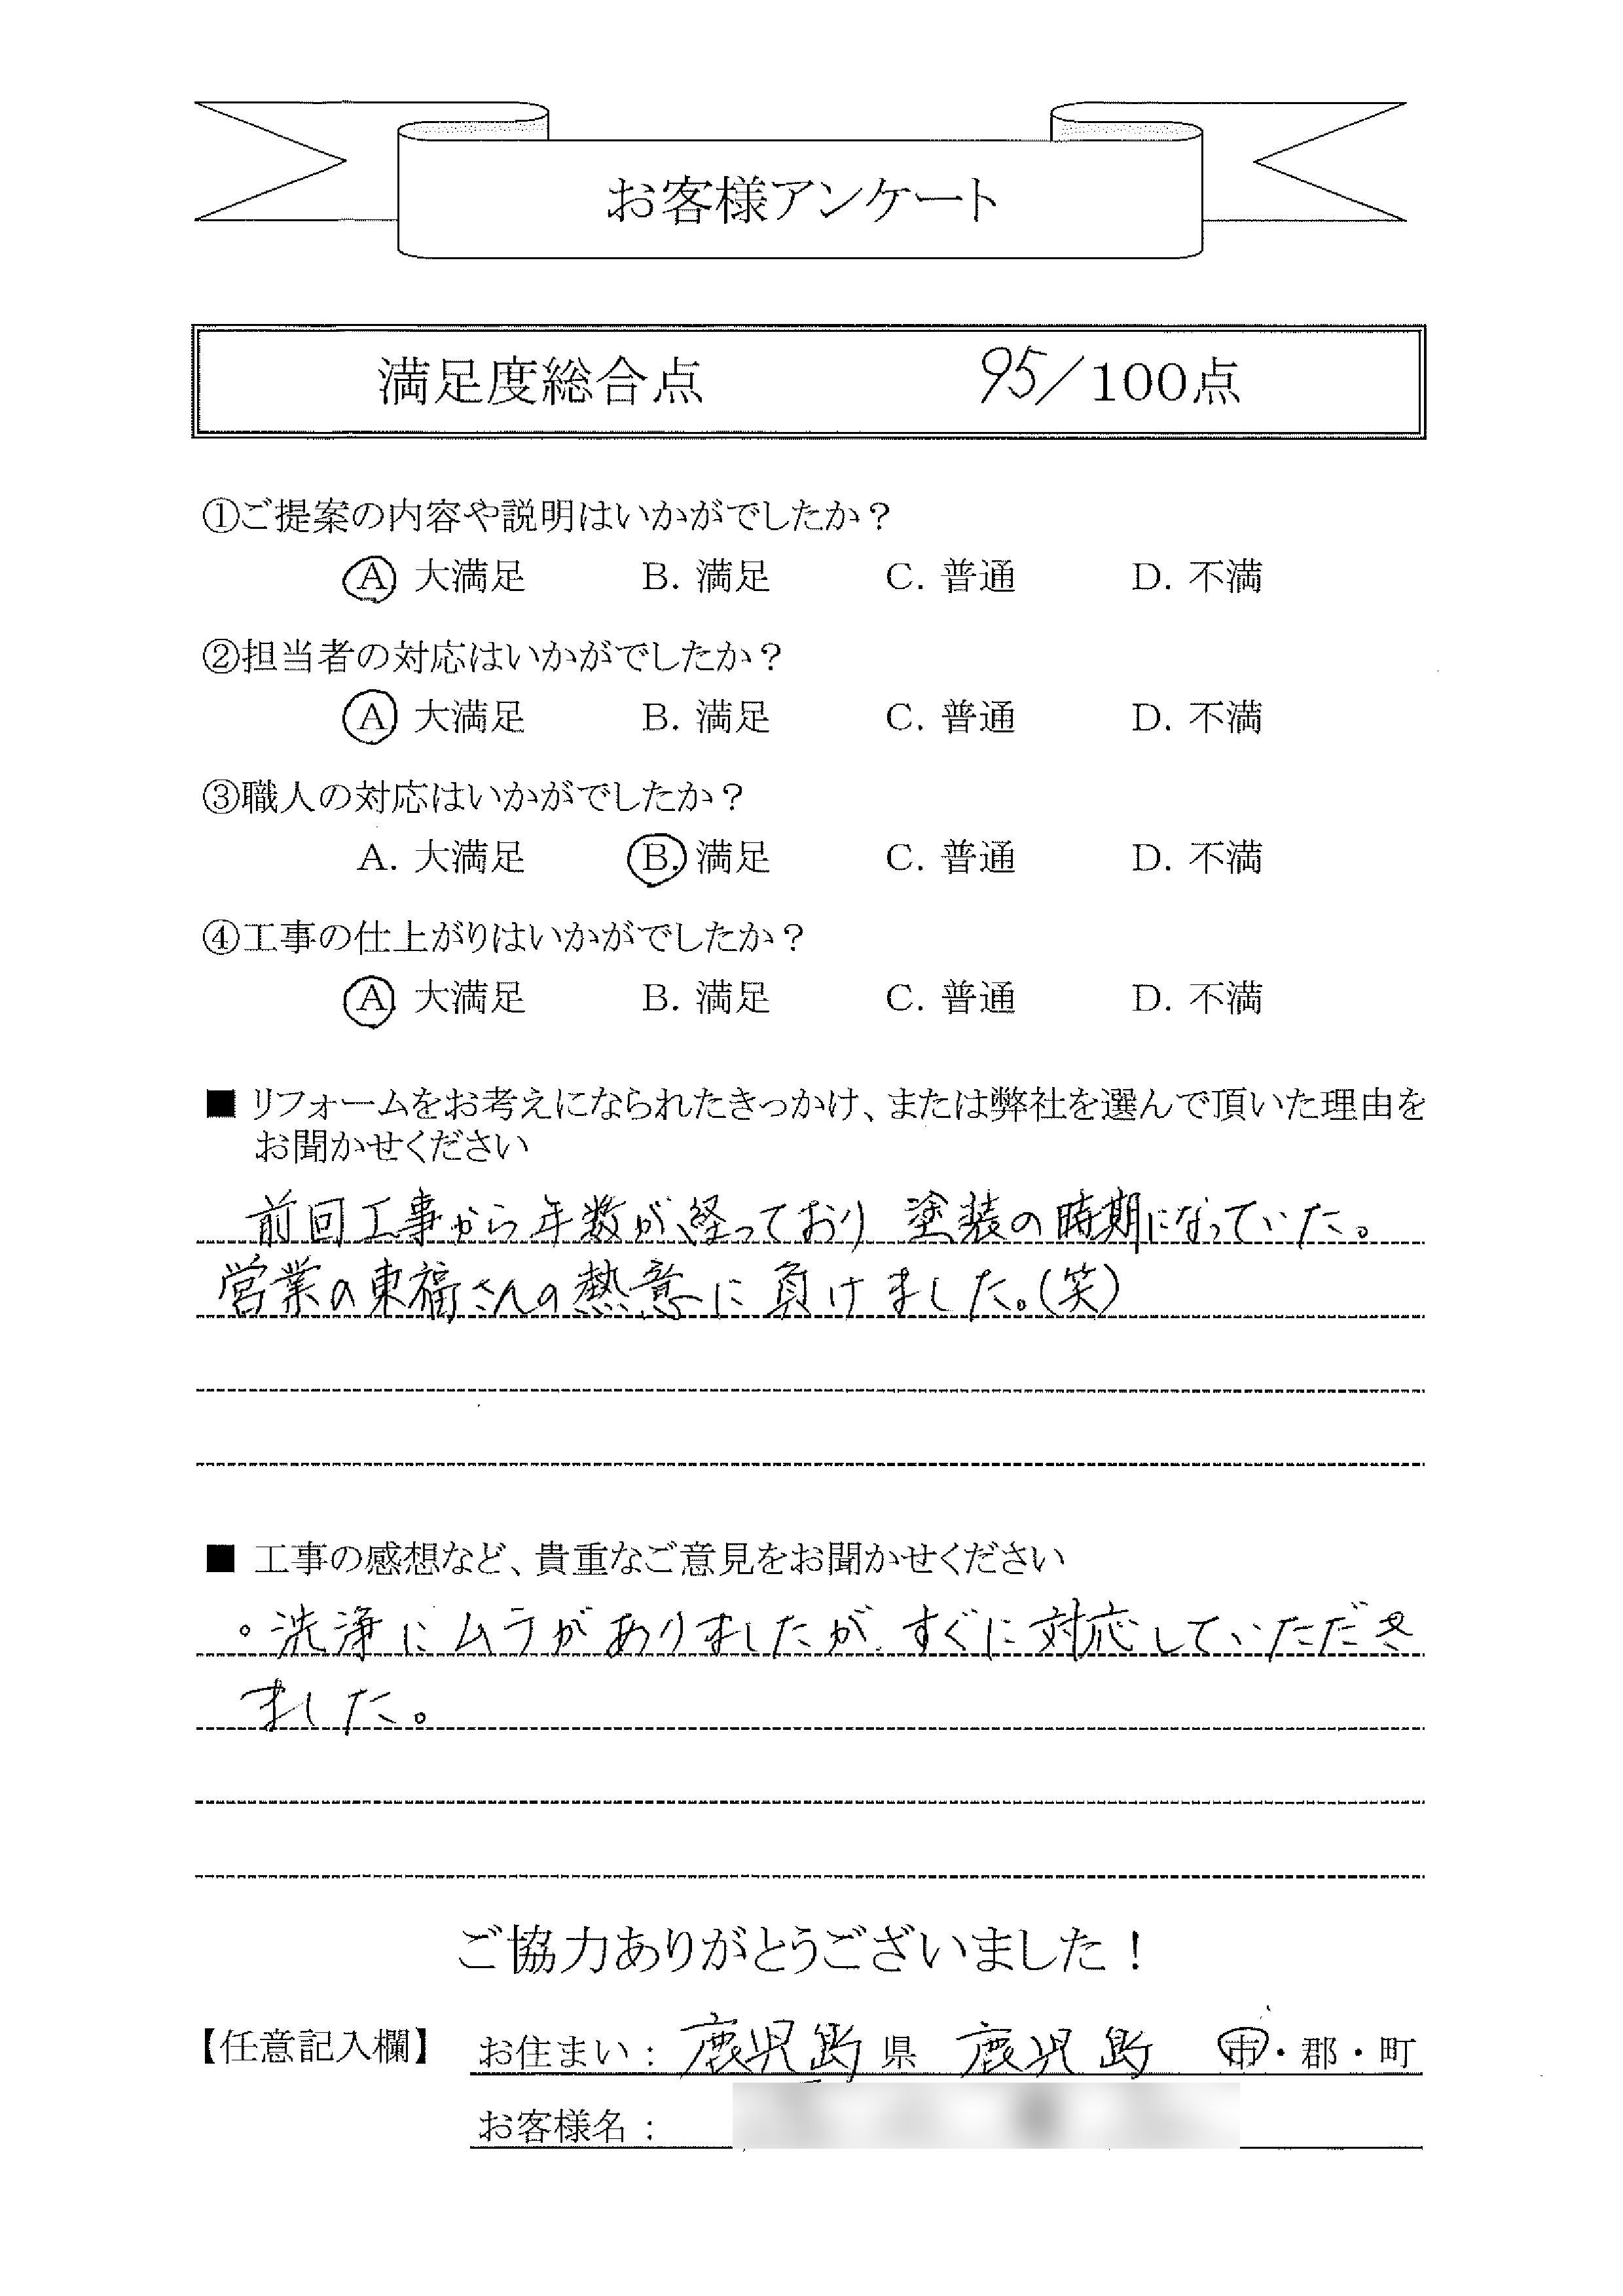 お客様アンケート
満足度総合点 95/100点
①ご提案の内容や説明はいかがでしたか？
A 大満足 B. 満足 C. 普通 D. 不満
②担当者の対応はいかがでしたか？
A 大満足 B. 満足 C. 普通 D. 不満
③職人の対応はいかがでしたか？
A. 大満足 B. 満足 C. 普通 D. 不満
④工事の仕上がりはいかがでしたか？
A 大満足 B. 満足 C. 普通 D. 不満
■ リフォームをお考えになられたきっかけ、または弊社を選んで頂いた理由を
お聞かせください
前回工事から年数が経っており 塗装の時期になっていた。
営業の東福さんの熱意に負けました。(笑)
■ 工事の感想など、貴重なご意見をお聞かせください
。洗浄にムラがありましたが、すぐに対応していただき
ました。
ご協力ありがとうございました！
【任意記入欄】 お住まい： 鹿児島県 鹿児島 市・郡・町
お客様名：